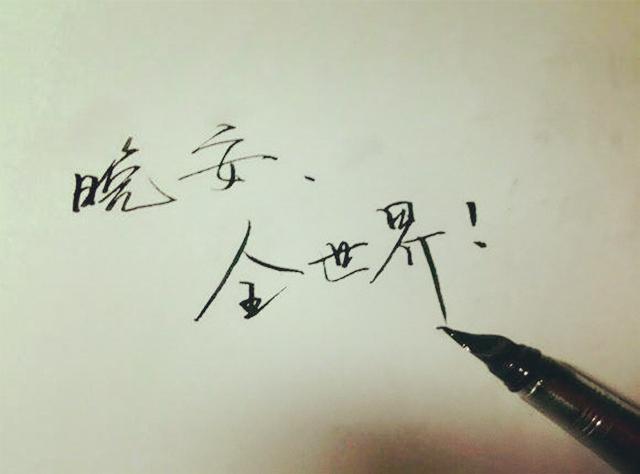 晚安、
全世界!